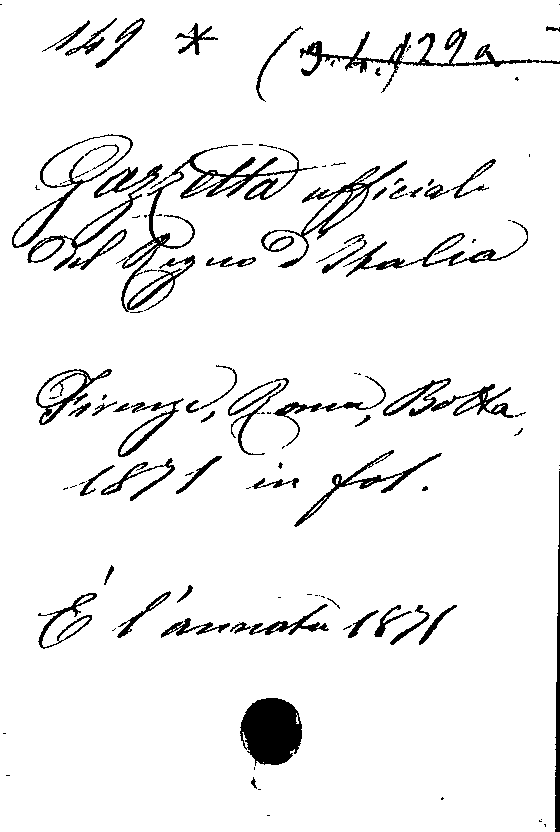 149 * (9.4.) 29a
Gazzetta ufficiale
del Regno d'Italia
Firenze, Roma, Botta,
1871 in fol.
É l'annata 1871